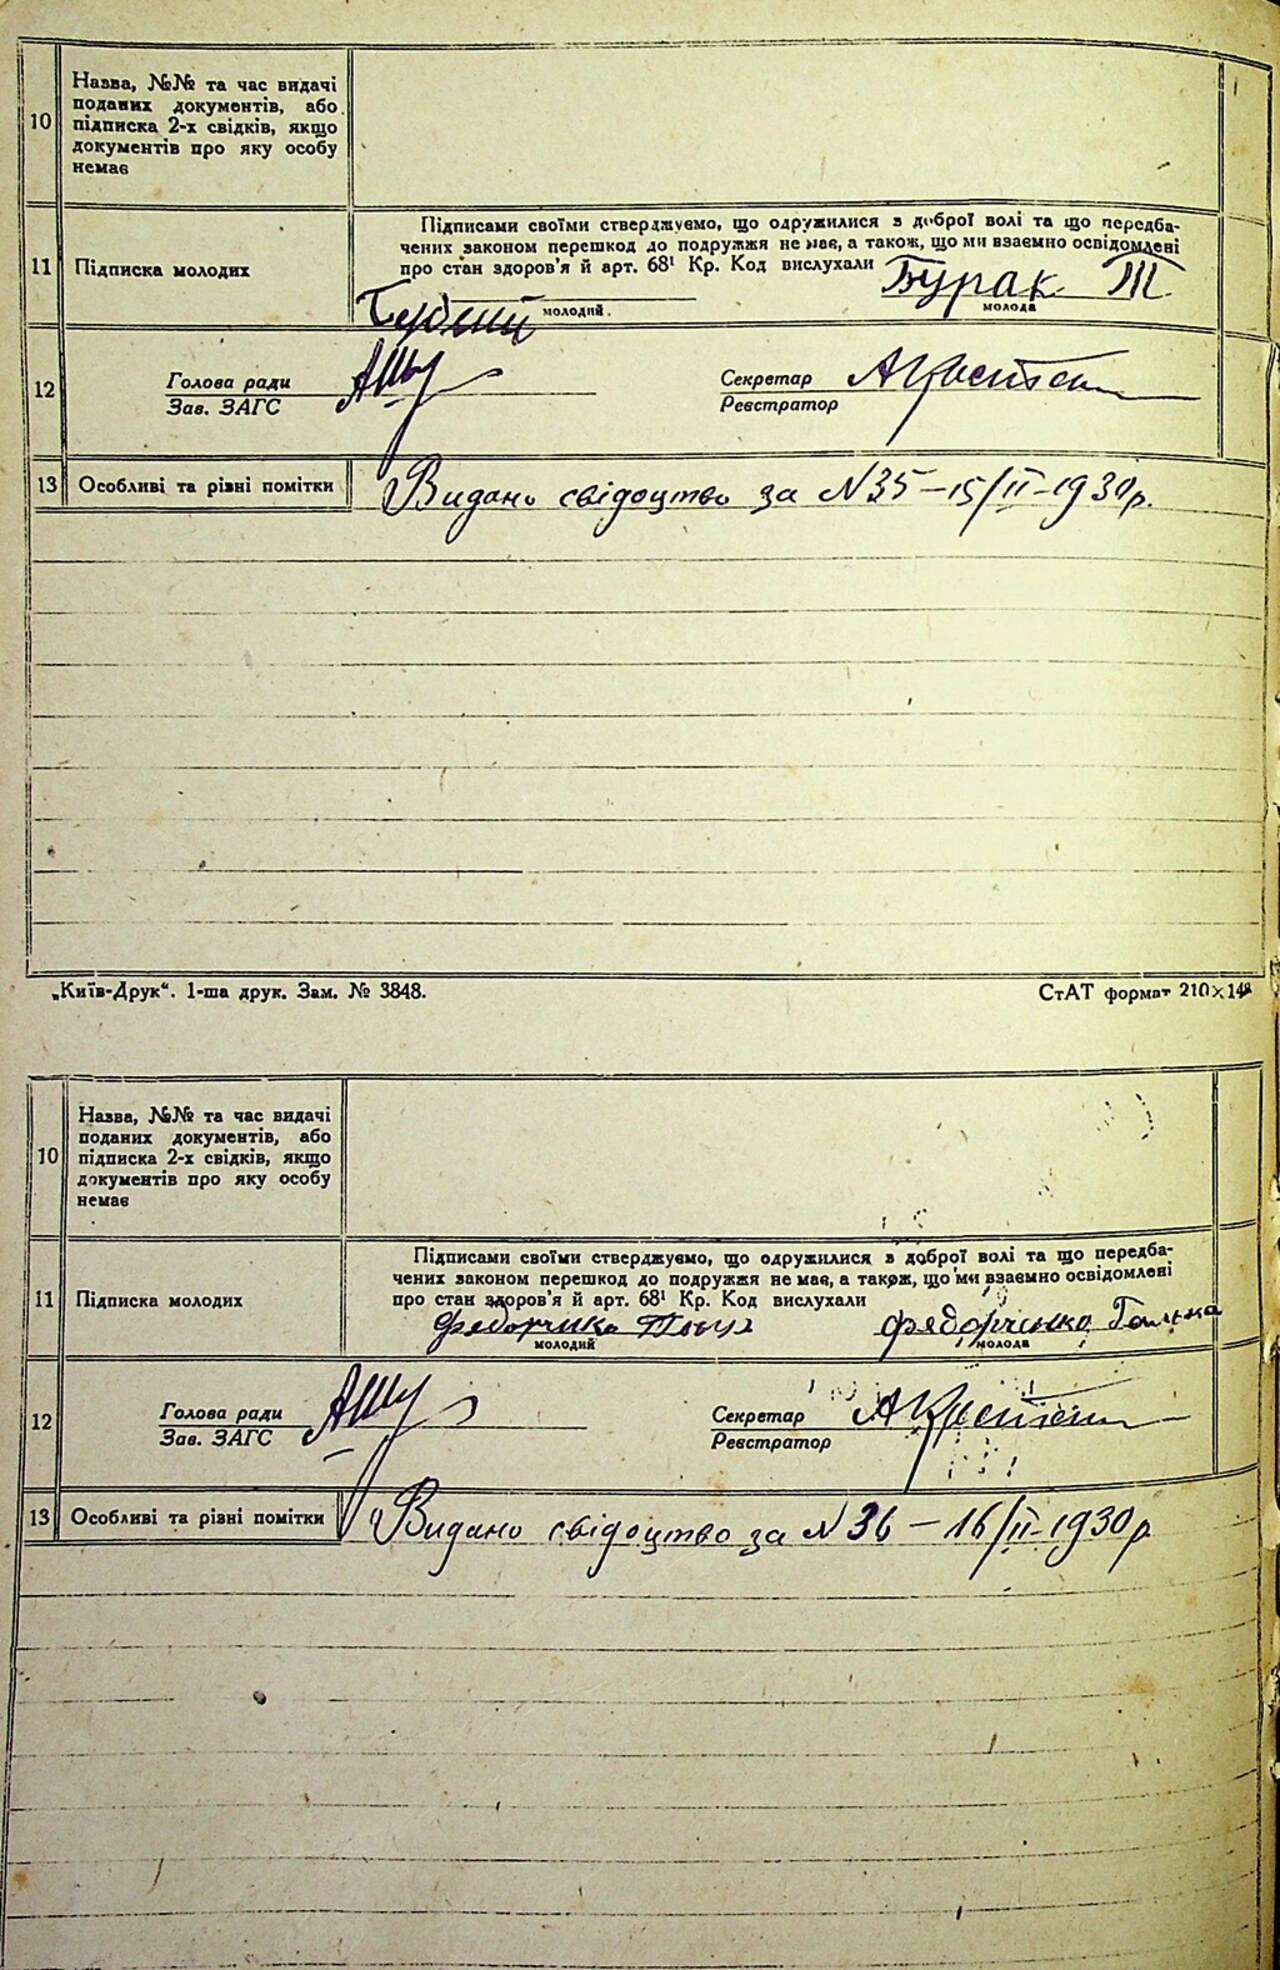 10
Назва, №№ та час видачі
поданих документів, або
підписка 2-х свідків, якщо
документів про яку особу
немає
11 Підписка молодих
Підписами своїми стверджуємо, що одружилися з доброї волі та що передба-
чених законом перешкод до подружжя не має, а також, що ми взаємно освідомлені
про стан здоров'я й арт. 68¹ Кр. Код вислухали
Бурак Т
молодий.
молода
12
Голова ради
Секретар
Зав. ЗАГС
Реєстратор
13 Особливі та різні помітки
Видано свідоцтво за N 35 – 15/II – 1930 р.
„Київ-Друк“. 1-ша друк. Зам. № 3848.
СтАТ формат 210×148
10
Назва, №№ та час видачі
поданих документів, або
підписка 2-х свідків, якщо
документів про яку особу
немає
11 Підписка молодих
Підписами своїми стверджуємо, що одружилися з доброї волі та що передба-
чених законом перешкод до подружжя не має, а також, що ми взаємно освідомлені
про стан здоров'я й арт. 68¹ Кр. Код вислухали
фядорченко
молодий
молода
12
Голова ради
Секретар
Зав. ЗАГС
Реєстратор
13 Особливі та різні помітки
Видано свідоцтво за N 36 – 16/II – 1930 р